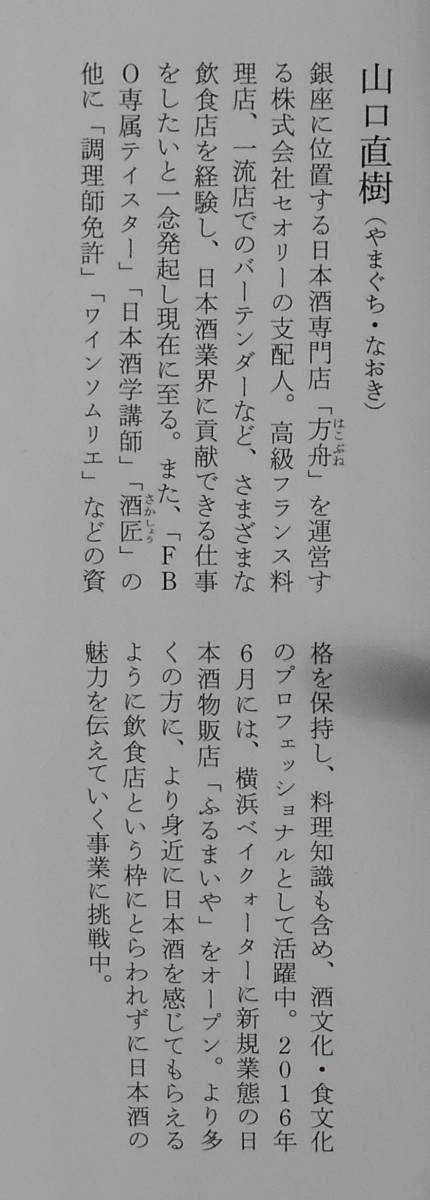 山口直樹（やまぐち・なおき）
銀座に位置する日本酒専門店「方舟」を運営す
はこぶね
る株式会社セオリーの支配人。高級フランス料
理店、一流店でのバーテンダーなど、さまざまな
飲食店を経験し、日本酒業界に貢献できる仕事
をしたいと一念発起し現在に至る。また、「FB
O専属テイスター」「日本酒学講師」「酒匠」の
さかしょう
他に「調理師免許」「ワインソムリエ」などの資
格を保持し、料理知識も含め、酒文化・食文化
のプロフェッショナルとして活躍中。2016年
6月には、横浜ベイクォーターに新規業態の日
本酒物販店「ふるまいや」をオープン。より多
くの方に、より身近に日本酒を感じてもらえる
ように飲食店という枠にとらわれずに日本酒の
魅力を伝えていく事業に挑戦中。